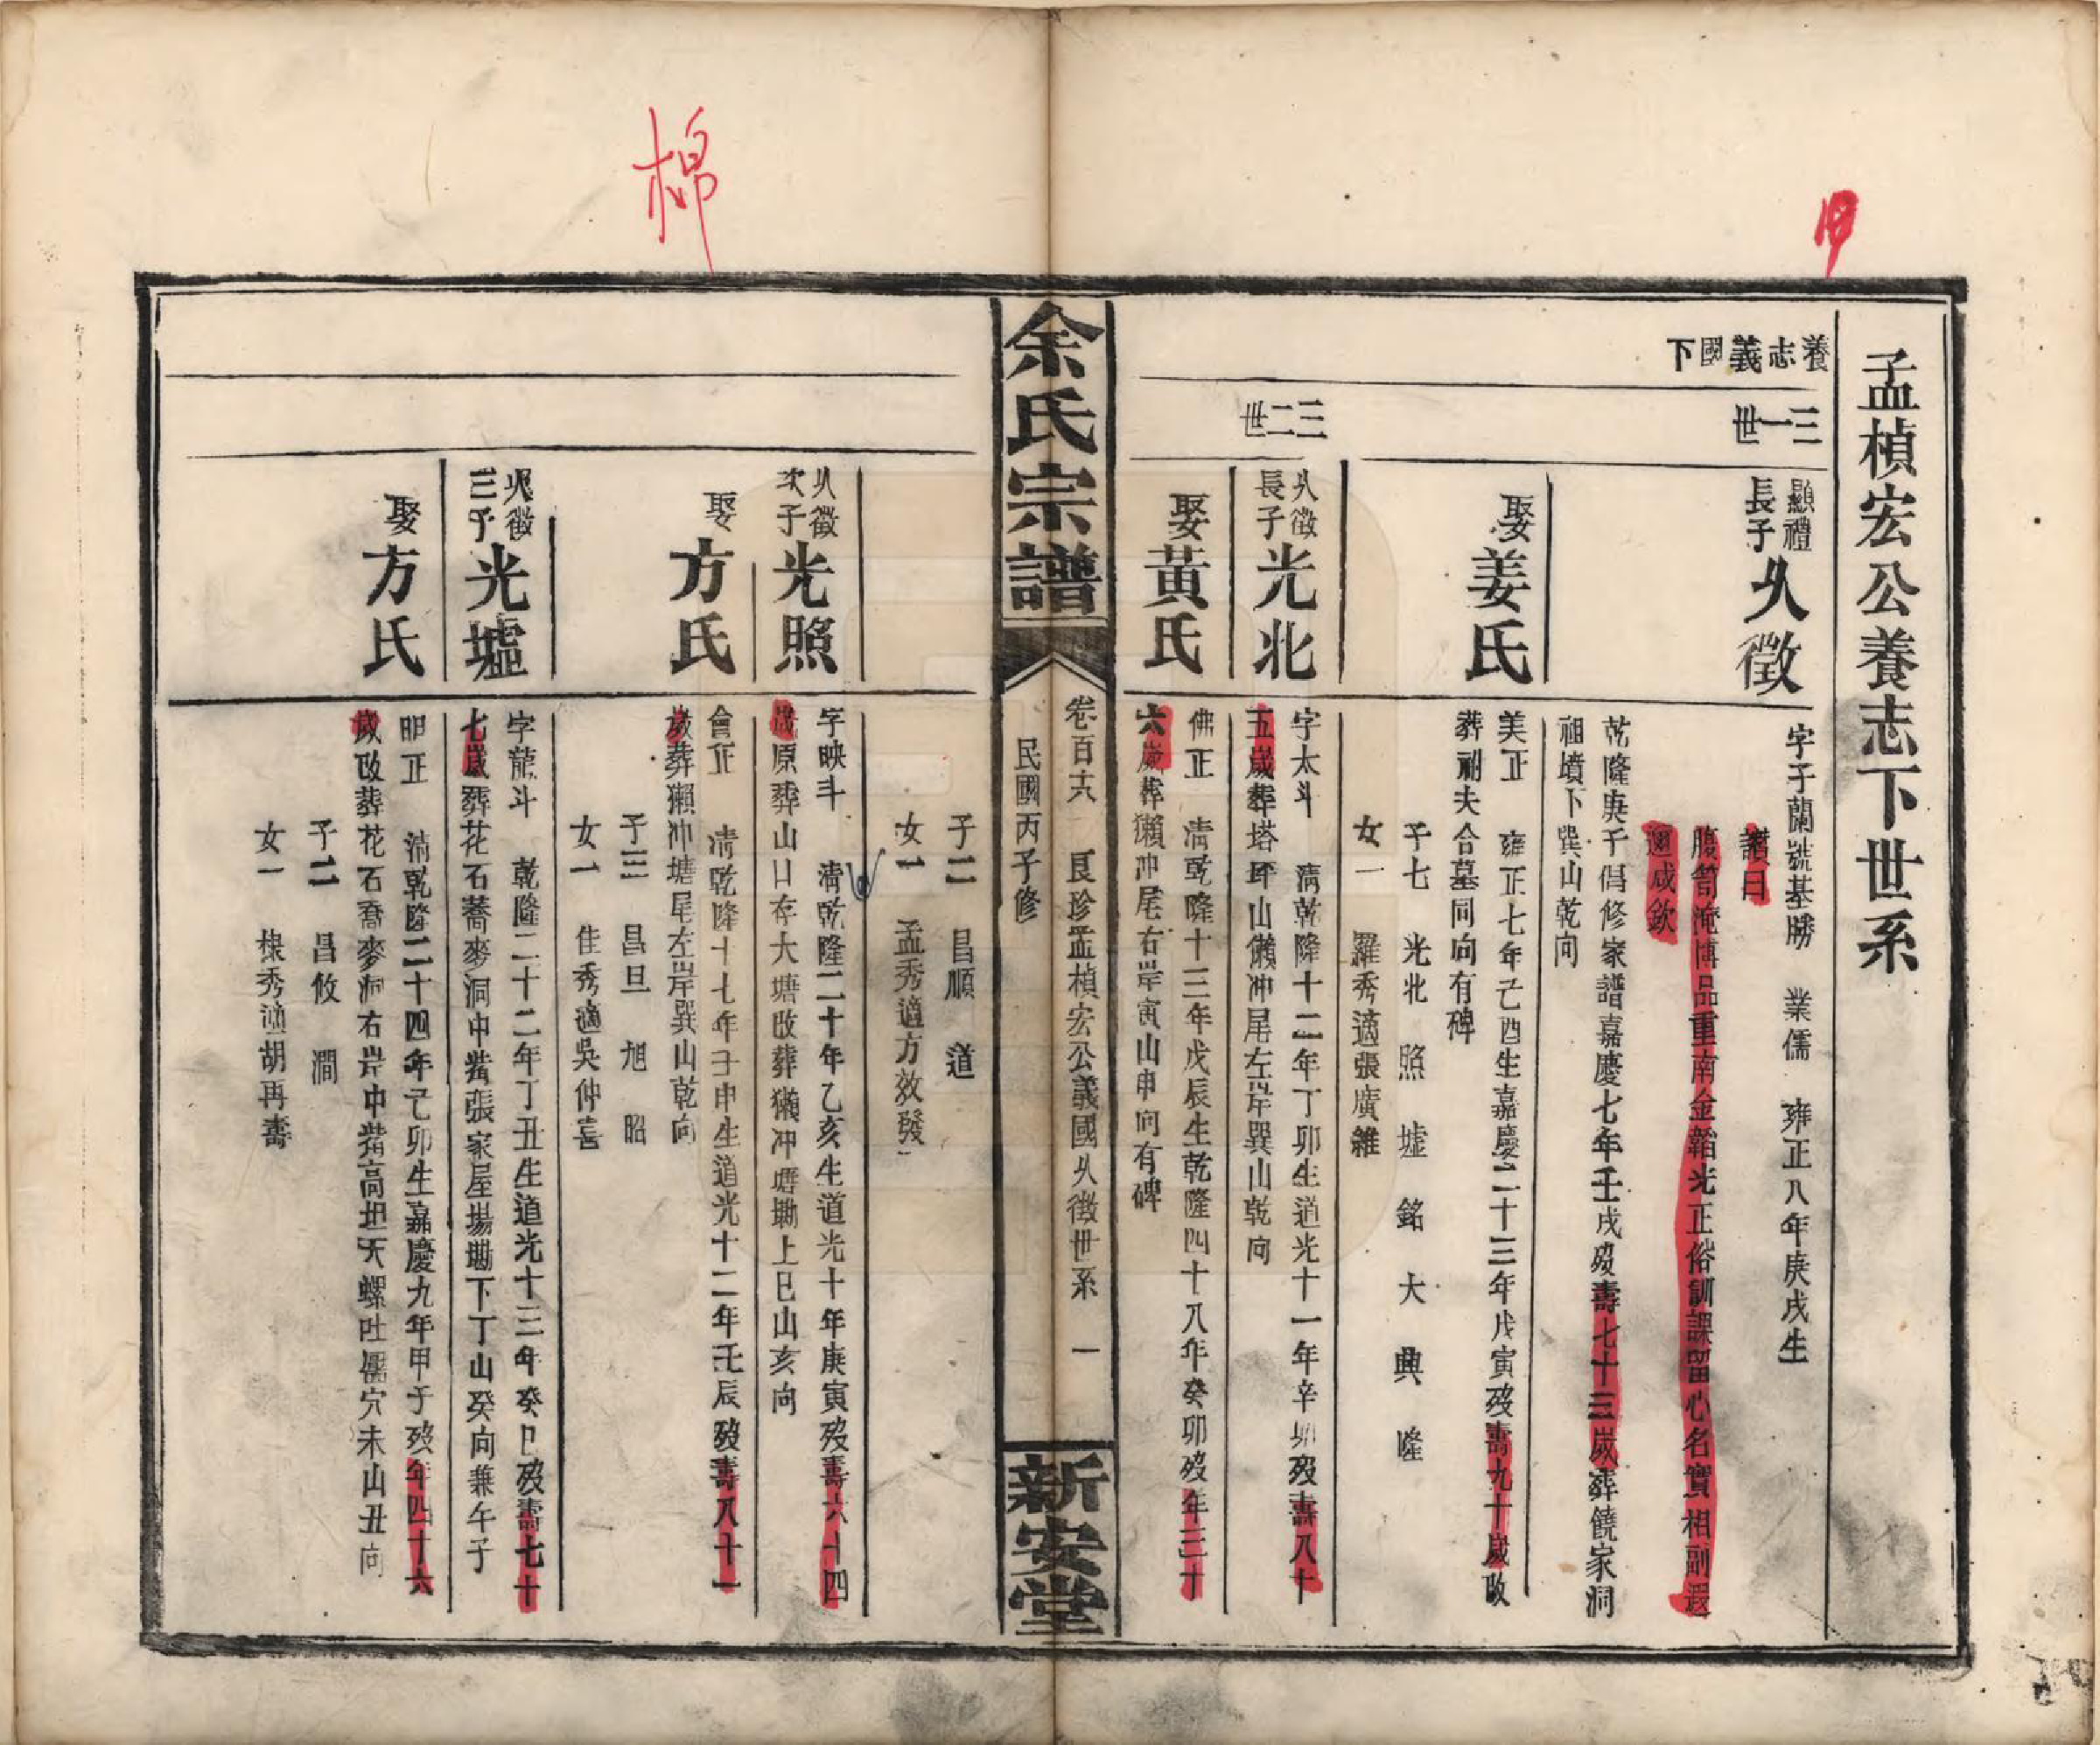 棉
孟楨宏公養志下世系
養志義國下
三一世
顯禮長子 乆徵
字子蘭號基勝 業儒 雍正八年庚戌生
讚曰
腹笥淹博品重南金韜光正俗訓課留心名實相副遐
邇咸欽
乾隆庚子倡修家譜嘉慶七年壬戌歿壽七十三歲葬饒家洞
祖墳下巽山乾向
娶姜氏
美正 雍正七年己酉生嘉慶二十三年戊寅歿壽九十歲改
葬祔夫合墓同向有碑
子七 光北 照 墟 銘 大 典 隆
女一 羅秀適張廣雜
三二世
乆徵長子 光北
字太斗 清乾隆十二年丁卯生道光十一年辛卯歿壽八十
五歲葬塔坪山懶冲尾左岸巽山乾向
娶黃氏
佛正 清乾隆十三年戊辰生乾隆四十八年癸卯歿年三十
六歲葬獺冲尾右岸寅山申向有碑
余氏宗譜
卷百六 艮珍孟楨宏公義國乆徵世系 一
民國丙子修
新安堂
子二 昌順 道
女一 孟秀適方效發
乆徵次子 光照
字映斗 清乾隆二十年乙亥生道光十年庚寅歿壽六十四
歲原葬山口存大塘改葬獺冲塘墈上巳山亥向
娶方氏
會正 清乾隆十七年壬申生道光十二年壬辰歿壽八十一
歲葬獺冲塘尾左岸巽山乾向
子三 昌旦 旭 昭
女一 佳秀適吳仲喜
乆徵三子 光墟
字龍斗 乾隆二十二年丁丑生道光十三年癸巳歿壽七十
七歲葬花石蕎麥洞中嘴張家屋場墈下丁山癸向兼午子
娶方氏
明正 清乾隆二十四年己卯生嘉慶九年甲子歿年四十六
歲改葬花石喬麥洞右岸中嘴高坦天螺吐穴未山丑向
子二 昌攸 澗
女一 棣秀適胡再壽